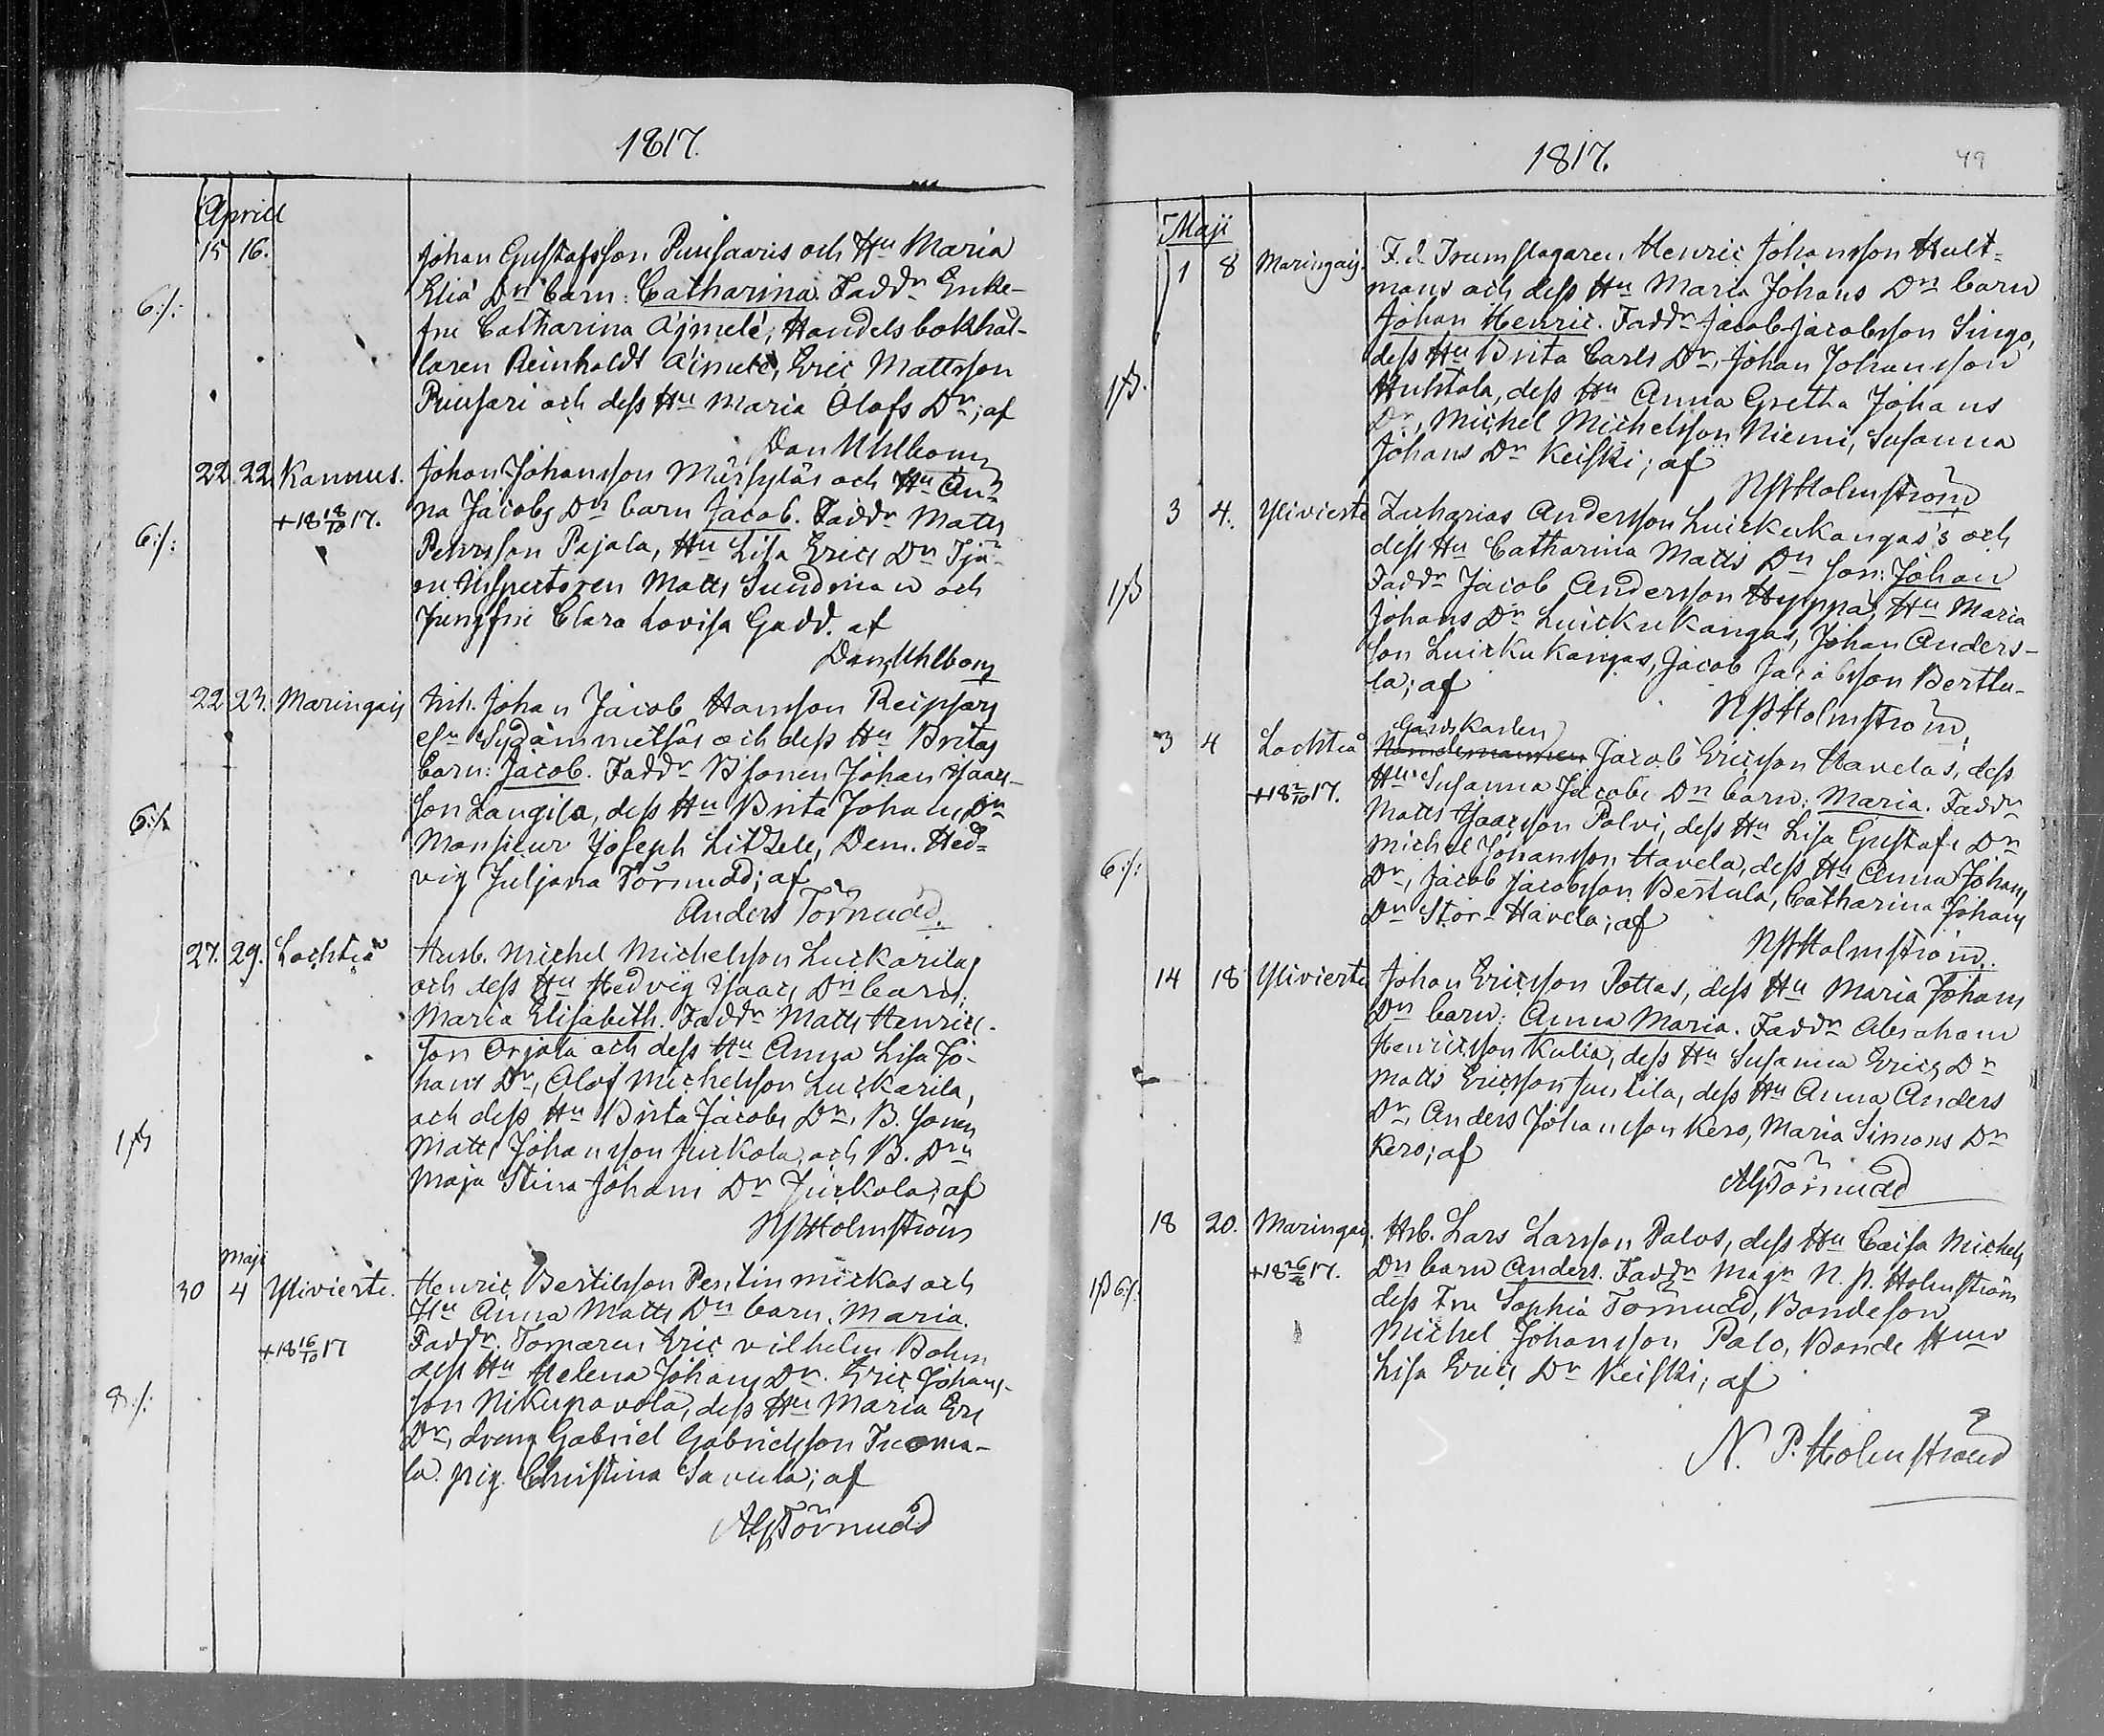 1817.
Aprill
15 16. Johan Gustafsson Puusaaris och Hu Maria
6:/: Eliæ Dr barn: Catharina. Faddr Enke-
fru Catharina Ajmelé, Handelsbokhål-
laren Reinholdt Ajmelé, Eric Mattsson
Puusari och dess Hu Maria Olofs Dr; af
Dan Uhlbom
22. 22. Kannus. Johan Johansson Märsyläs och Hu An-
+18 18/10 17. na Jacobs Dr barn Jacob. Faddr Matts
6:/: Pehrsson Pajala, Hu Lisa Erics Dr Tjä-
ru Inspectoren Matts Sundman och
Jungfru Clara Lovisa Gadd. af
Dan Uhlbom
22 23. Maringais Inh. Johan Jacob Hansson Reipsars
el. Sydänmetsäs och dess Hu Britas
barn: Jacob. Faddr Bsonen Johan Isaac-
son Laugila, dess Hu Brita Johans Dr
6:/: Monsieur Joseph Litzele, Dem. Hed-
vig Juljana Törnudd; af
Anders Törnudd.
27. 29. Lochteå Husb. Michel Michelsson Luckarilas
och dess Hu Hedvig Isaacs Dr barn:
Maria Elisabeth. Faddr Matts Henrics-
son Orjala och dess Hu Anna Lisa Jo-
hans Dr, Olof Michelsson Luckarila,
och dess Hu Brita Jacobs Dr, B. sonen
1 ß Matts Johansson Juckola och B. Dru
Maja Stina Johans Dr Juckola; af
NPHolmström
Maji
30 4 Ylivierte. Henric Bertilsson Pentinmickas och
Hu Anna Matts Dr barn, Maria.
+18 16/10 17 Faddr. Tornaren Eric Vilhelm Bohm
dess Hu Helena Johans Dr. Eric Johans-
8:/: son Nikupavola, dess Hu Maria Ers
Dr, dreng Gabriel Gabrielsson Tuoma-
la. pig. Christina Savela; af
AGTörnudd
1817. 49
Maji
1 8 Maringais. F. d. Trumslagaren Henric Johansson Hult-
mans och dess Hu Maria Johans Dr barn
Johan Henric. Faddr Jacob Jacobsson Singo,
dess Hu Brita Carls Dr, Johan Johansson
1 ß. Huhtala, dess Hu Anna Gretha Johans
Dr, Michel Michelsson Niemi, Susanna
Johans Dr Keiski; af
NPHolmström
3 4. Ylivierte Zacharias Andersson Luickukangas's och
dess Hu Catharina Matts Dr son: Johan
1 ß Faddr Jacob Andersson Hyppä, Hu Maria
Johans Dr Luickukangas, Johan Anders-
son Luickukangas, Jacob Jacobsson Berttu-
la; af
NPHolmström.
Gårdskarlen
3 4 Lochteå Nämdemannen Jacob Ericsson Havelas, dess
+18 2/10 17. Hu Susanna Jacobs Dr barn: Maria. Faddr
Matts Isacsson Polvi, dess Hu Lisa Gustafs Dr
6:/: Michel Johansson Havela, dess Hu Anna Johans
Dr, Jacob Jacobsson Bertula, Catharina Johans
Dr Stor-Havela; af
NPHolmström.
14 18 Ylivierte Johan Ericsson Pottas, dess Hu Maria Johans
Dr barn: Anna Maria. Faddr Abraham
Henricsson Kalia, dess Hu Susanna Erics Dr
Matts Ericsson Juntila, dess Hu Anna Anders
Dr, Anders Johansson Kero, Maria Simons Dr
Kero; af
AGTörnudd
18 20. Maringais. Hsb. Lars Larsson Palos, dess Hu Caisa Michels
1 ß 6:/: Dr barn Anders. Faddr Magr N. P. Holmström
dess Fru Sophia Törnudd, Bondeson
Michel Johansson Palo, Bonde Hun
Lisa Erics Dr Keiski; af
N. P. Holmström